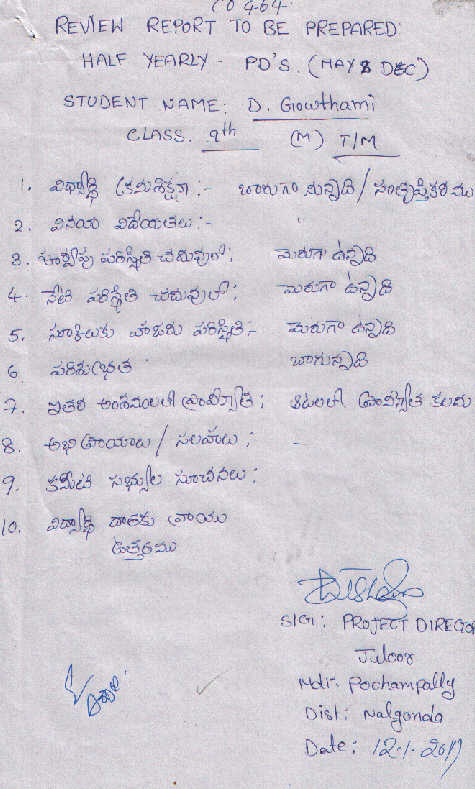 CO 464
REVIEW REPORT TO BE PREPARED
HALF YEARLY - PD'S. (MAY & DEC)
STUDENT NAME: D. Gowthami
CLASS. 9th (M) T/M
1. విద్యార్థి క్రమశిక్షణ :- బాగుగా వున్నది / సంతృప్తికరము
2. వినయ విధేయతలు :-
3. వార్షికపు పరిస్థితి చదువులో : మెరుగా ఉన్నది
4. నేటి పరిస్థితి చదువులో : మెరుగా ఉన్నది
5. స్కూలుకు హాజరు పరిస్థితి :- మెరుగా ఉన్నది
6. పరిశుభ్రత బాగున్నది
7. ఇతర అంశములలో ప్రావీణ్యత : ఆటలలో ప్రావీణ్యత కలదు
8. అభిప్రాయాలు / సలహాలు : -
9. కమిటీ సభ్యుల సూచనలు :
10. విద్యార్థి దాతకు వ్రాయు
ఉత్తరము
SIG: PROJECT DIRECTO
Juloor
Mdl: Pochampally
Dist: Nalgonda
Date: 12-1-2017